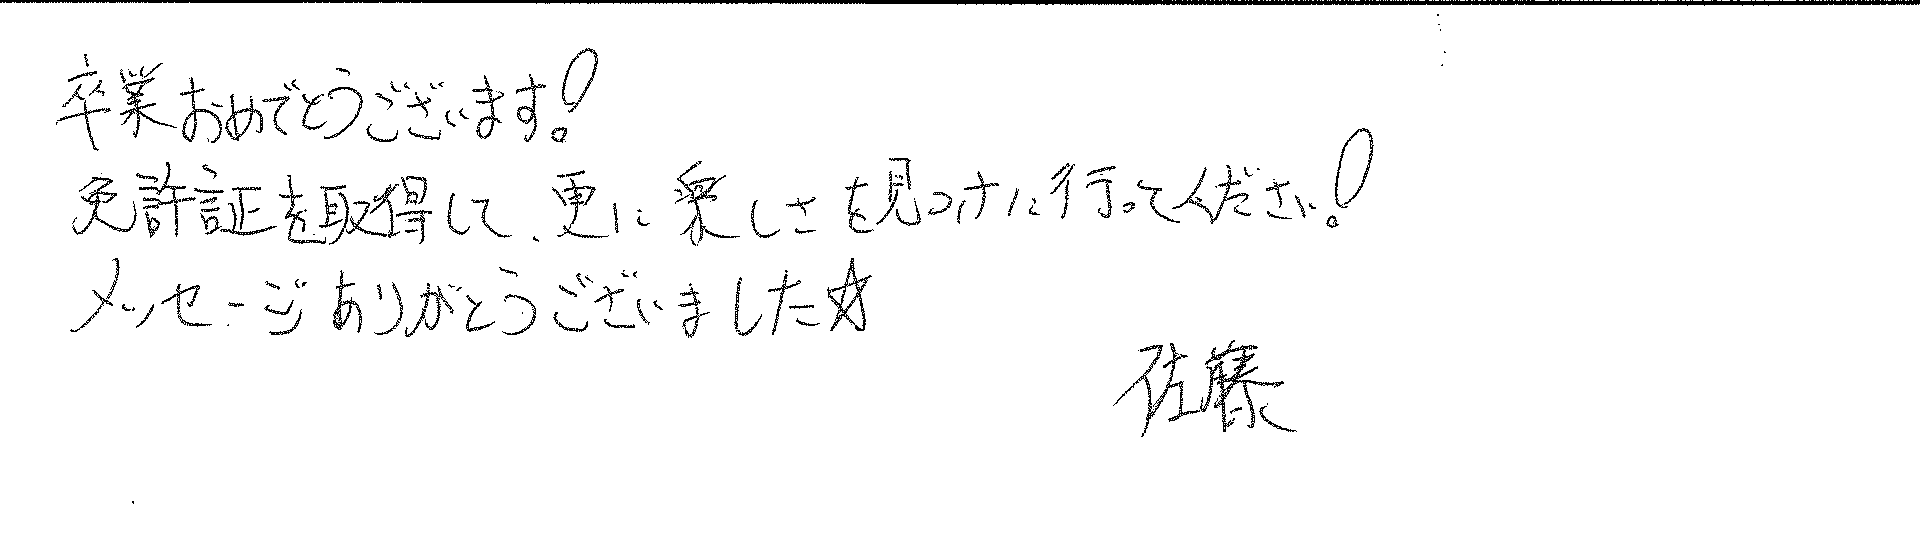 卒業おめでとうございます!
免許証を取得して、更に楽しさを見つけに行ってください!
メッセージありがとうございました☆
佐藤